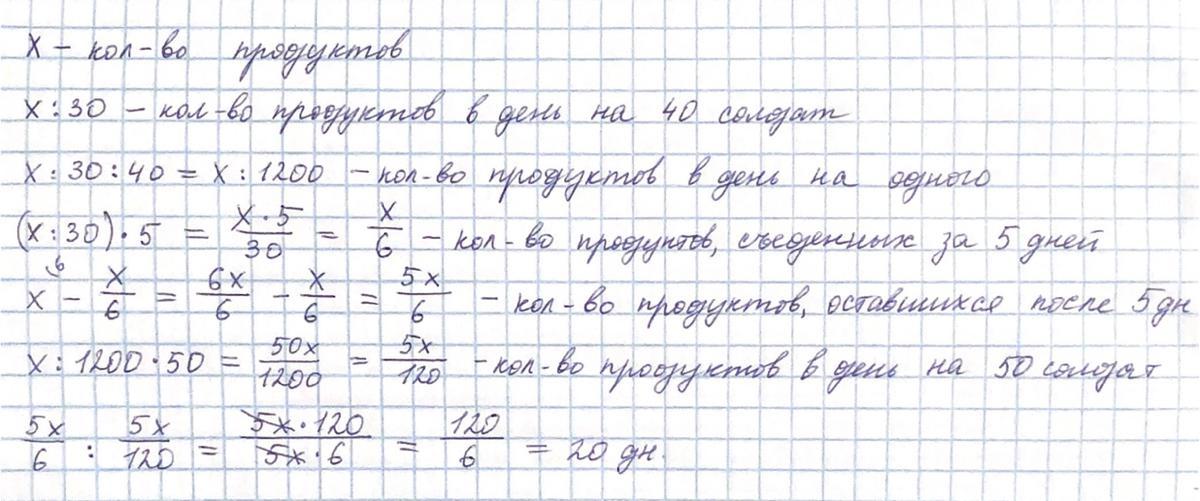 x – кол-во продуктов
x : 30 – кол-во продуктов в день на 40 солдат
x : 30 : 40 = x : 1200 – кол-во продуктов в день на одного
(x : 30) · 5 = x · 5 / 30 = x / 6 – кол-во продуктов, съеденных за 5 дней
x – x / 6 = 6x / 6 – x / 6 = 5x / 6 – кол-во продуктов, оставшихся после 5 дн
x : 1200 · 50 = 50x / 1200 = 5x / 120 – кол-во продуктов в день на 50 солдат
5x / 6 : 5x / 120 = 5x · 120 / 5x · 6 = 120 / 6 = 20 дн.